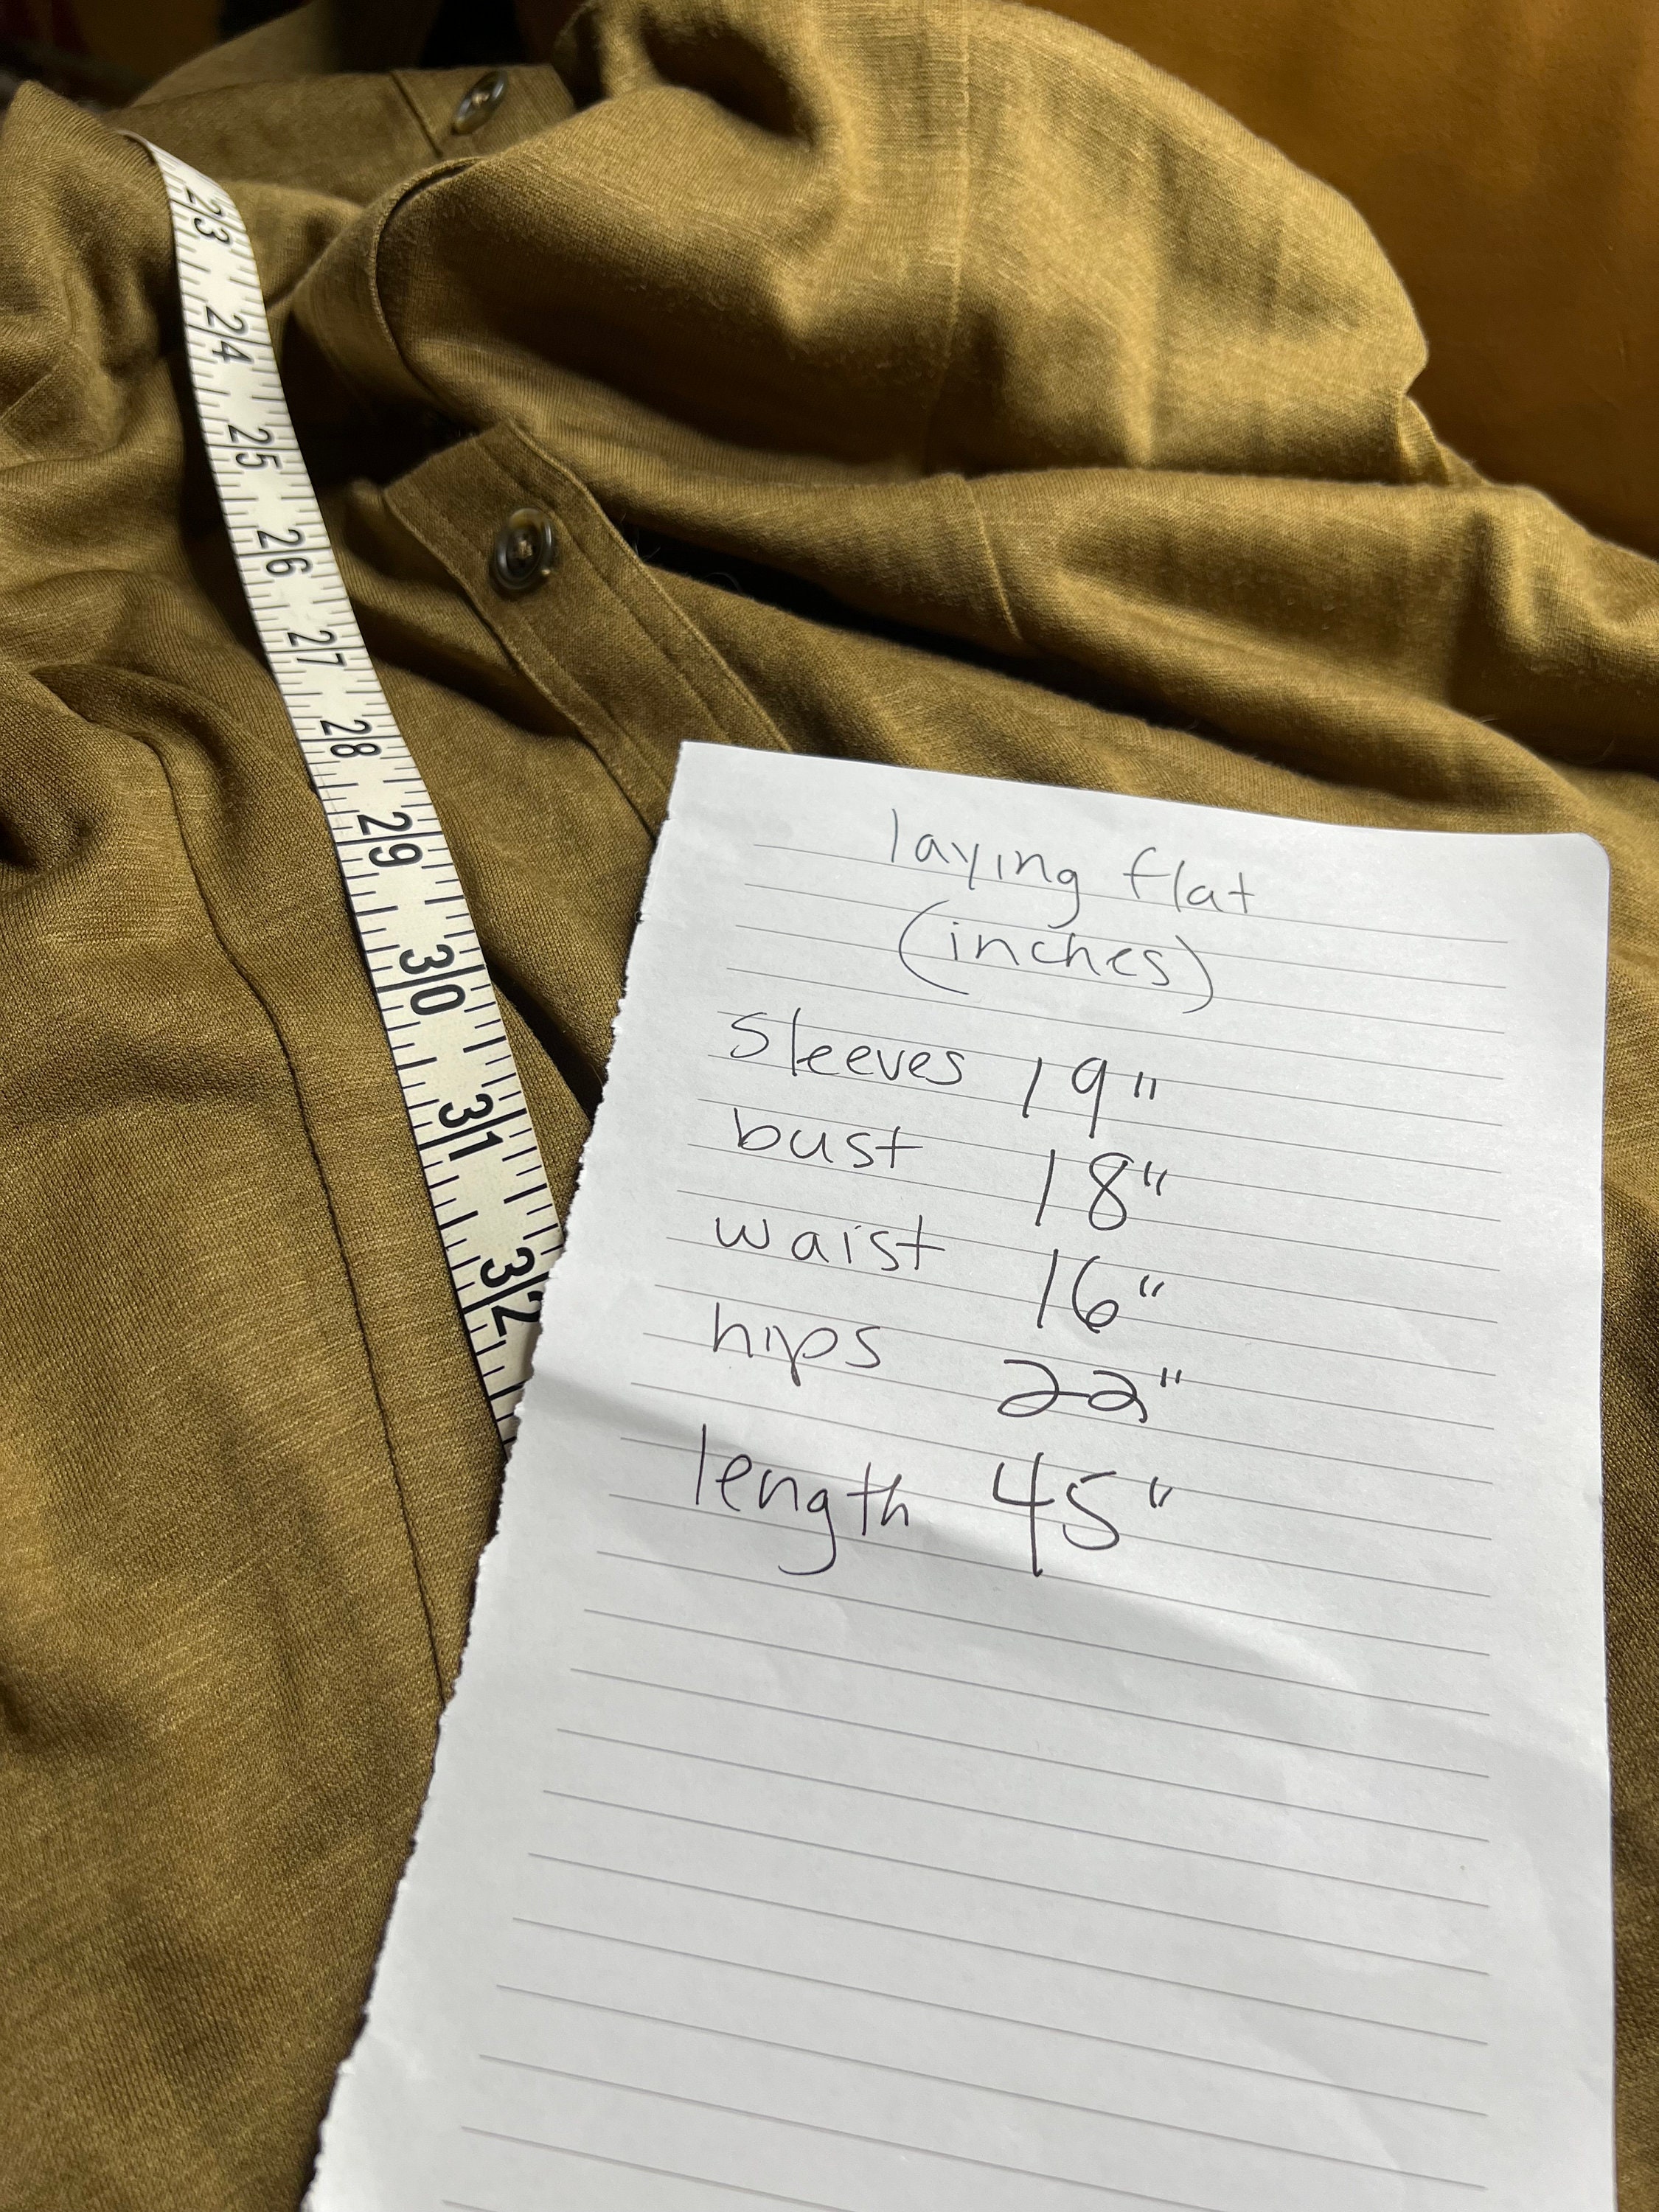 laying flat
(inches)
sleeves 19"
bust 18"
waist 16"
hips 22"
length 45"
23
24
25
26
27
28
29
30
31
32